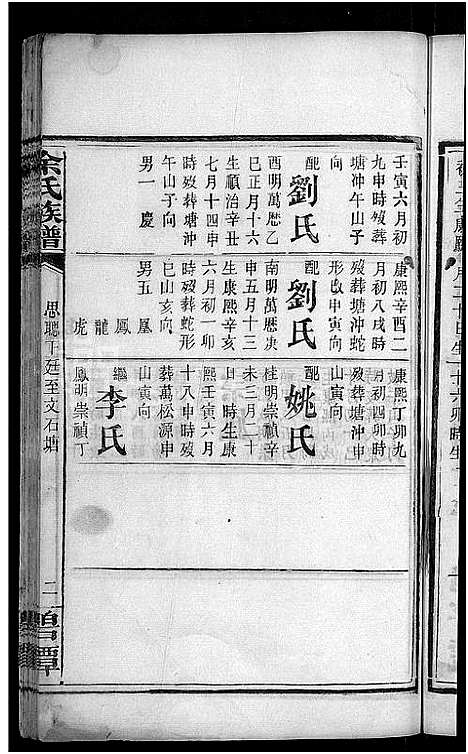 壬寅六月初
九申時歿葬
塘沖午山子
向
配劉氏
酉明萬歷乙
巳正月十六
生順治辛丑
七月十四申
時歿葬塘沖
午山子向
男一 慶
康熙辛酉二
月初八戌時
歿葬塘沖蛇
形申寅向
配劉氏
南明萬歷庚
申五月十三
生康熙辛亥
六月初一卯
時歿葬蛇形
巳山亥向
男五 凰
鳳
龍
虎
康熙丁卯九
月初四卯時
歿葬塘沖申
山寅向
配姚氏
桂明崇禎辛
未三月二十
日 時生康
熙壬寅六月
十八申時歿
葬萬松源申
山寅向
繼李氏
鳳明崇禎丁
余氏族譜
思聰下廷至文石塘
二